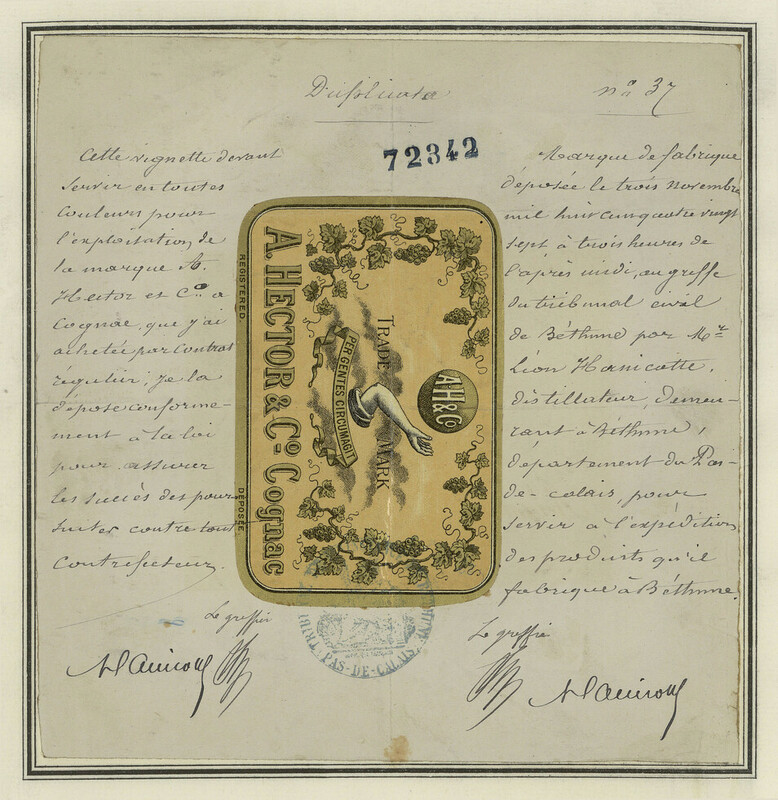 Duplicata
nº 37
72342
Cette vignette devant
servir en toutes
couleurs pour
l'exploitation de
la marque A.
Hector et Cº a
Cognac, que j'ai
achetée par contrat
régulier, je la
dépose conforme-
ment à la loi
pour assurer
les succès des pour
suites contre tout
contrefacteur.
Le greffier
REGISTERED.
DÉPOSÉE
A. HECTOR & Cº. Cognac
PER GENTES CIRCUMAGIT
TRADE MARK
AH&Cº
Marque de fabrique
déposée le trois novembre
mil huit cent quatre vingt
sept à trois heures de
l'après midi, au greffe
du tribunal civil
de Béthune par Mr
Léon Hanicotte,
distillateur, demeu-
rant à Béthune,
département du Pas-
de-calais, pour
servir à l'expédition
des produits qu'il
fabrique à Béthune.
Le greffier
PAS-DE-CALAIS